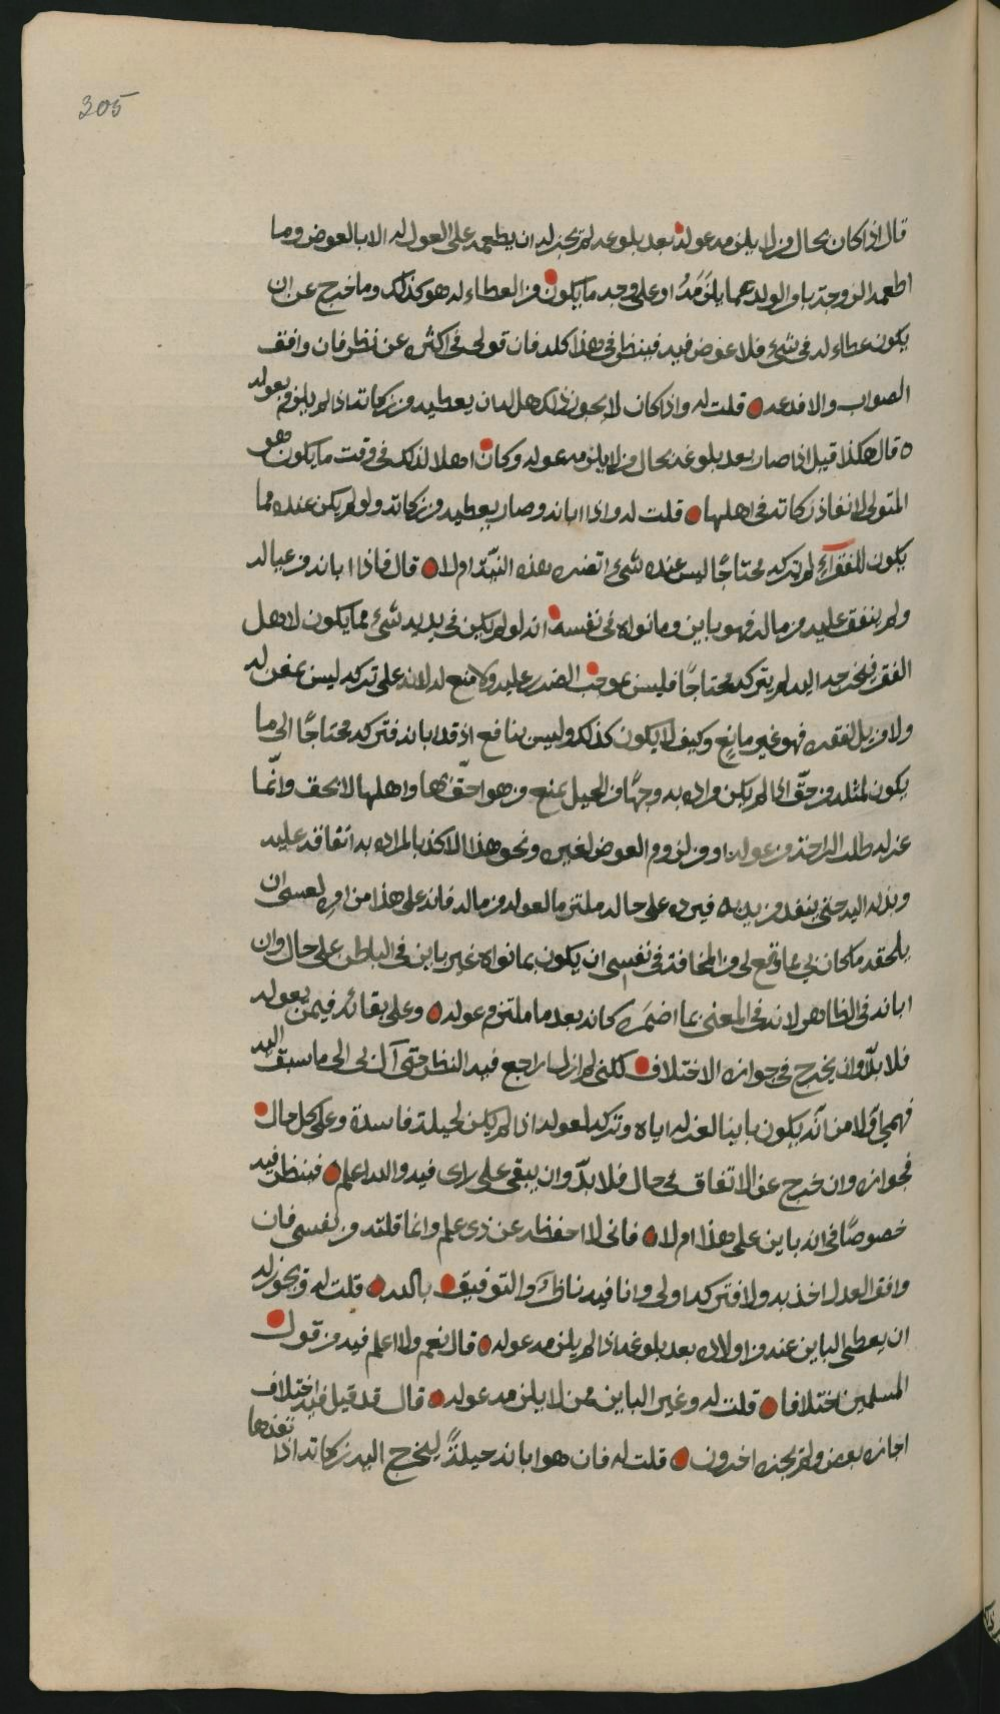 305
قال اذا كان بحال من لا يلزمه عوله بعد بلوغه لم يجز له ان يطعمه على العول له الا بالعوض وما
اطعمه الزوجة او الولد عما يلزمه او على وجه ما يكون من العطاء له هو كذلك وما خرج عن ان
يكون عطاء له في شيء فلا عوض فيه فينظر في هذا كله فان قولي في اكثره عن نظر فان وافق
الصواب والا فدعه قلت له واذا كان لا يجوز ذلك هل له ان يعطيه من زكاته اذا لم يلزم بعوله
قال هكذا قيل اذا صار بعد بلوغه بحال من لا يلزمه عوله وكان اهلا لذلك في وقت ما يكون هو
المتولي لانفاذ زكاته في اهلها قلت له واذا ابانه وصار يعطيه من زكاته ولو لم يكن عنده مما
يكون للفقراء لم يتركه محتاجًا ليس عنده شيء اتضره هذه النيّة ام لا قال فاذا ابانه من عياله
ولم ينفق عليه من ماله فهو باين وما نواه في نفسه انه لو لم يكن في يديه شيء مما يكون لاهل
الفقر فيخرجه اليه لم يتركه محتاجًا فليس بموجب الضرر عليه ولا منع له لانه على تركه ليس بمغن له
ولا مزيل لفقره فهو غير مانع وكيف لا يكون كذلك وليس بنافع اذ قد ابانه فتركه محتاجًا الى ما
يكون لمثله من حقّ اذا لم يكن مراده به وجهًا من الحيل بمنع من هو احقّ بها واهلها لا بحق وانّما
عزله طلب الراحة من عوله او من لزوم العوض لغيره ونحو هذا الا كذا بالمراد به اتفاقه عليه
وبذله اليه حتى ينفد من يديه فيرده على حاله ملتزما لعوله من ماله فانه على هذا من امره لعسى ان
يلحقه ما كان بي عاوقع لي من المخافة في نفسي ان يكون بما نواه غير باين في الباطن على حال وان
ابانه في الظاهر لانه في المعنى بما اضمره كانه بعد ما ملتزم عوله وعلى بقائه فيمن يعوله
فلا بدّ وان يخرج في جوازه الاختلاف لكني لم ازل اراجع فيه النظر حتى آل بي الى ما سبق اليه
فهمي اولا من انه يكون باينا لعزله اياه وتركه لعوله اذا لم يكن لحيلة فاسدة وعلى كل حال
فجوازه وان خرج عن الاتفاق في حال فلا بدّ وان يبقى على راى فيه والله اعلم فينظر فيه
خصوصًا في انه باين على هذا ام لا فاني لا احفظه عن ذي علم وانما قلته من نفسي فان
وافق العدل اخذ به ولا فتركه اولى وانا فيه ناظر والتوفيق بالله قلت له ويجوز له
ان يعطي الباين عنه من اولاده بعد بلوغه اذا لم يلزمه عوله قال نعم ولا اعلم فيه من قول
المسلمين اختلافا قلت له وغير الباين ممن لا يلزمه عوله قال قد قيل فيه باختلاف
اجازه بعض ولم يجزه اخرون قلت له فان هو ابانه حيلةً ليخرج اليه زكاته اذا نفذها